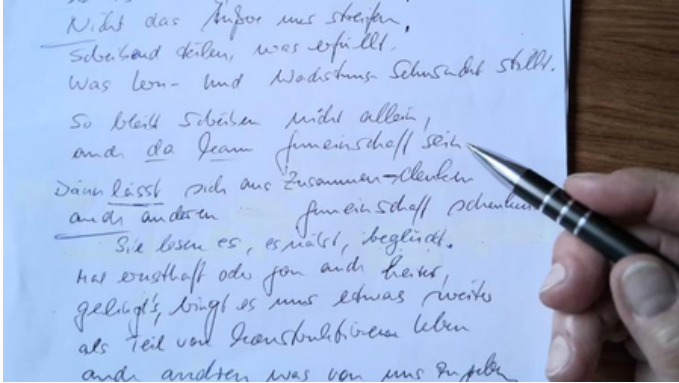 Nicht das Äußre nur streifen,
Schreibend teilen, was erfüllt.
Was Lern- und Wachstums-Sehnsucht stillt.
So bleibt Schreiben nicht allein,
auch da kann Gemeinschaft sein
Dann lässt sich aus Zusammen-denken
auch anderen Gemeinschaft schenken
Sie lesen es, es nützt, beglückt.
Mal ernsthaft oder gern auch heiter,
gelingt's, bringt es uns etwas weiter
als Teil von konstruktivem Leben
auch andren was von uns zu geben